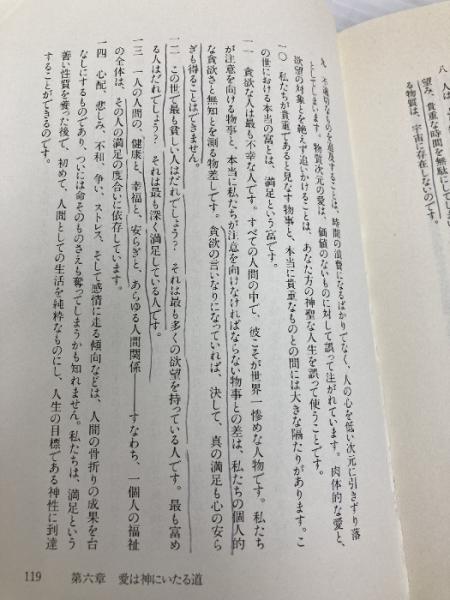 八 人は、
望み、貴重な時間を無駄にして
る物質は、宇宙に存在しないのです。
九 不適切なものを追及することは、時間の浪費になるばかりでなく、人の心を低い次元に引きずり落
としてしまいます。物質次元の愛は、価値のないものに対して誤って注がれています。肉体的な愛と、
欲望の対象とを絶えず追いかけることは、あなた方の神聖な人生を誤って使うことです。
一〇 私たちが貴重であると見なす物事と、本当に貴重なものとの間には大きな隔たりがあります。こ
の世における本当の富とは、満足という富です。
一一 貪欲な人は最も不幸な人です。すべての人間の中で、彼こそが世界一惨めな人物です。私たち
が注意を向ける物事と、本当に私たちが注意を向けなければならない物事との差は、私たちの個人的
な貪欲さと無知とを測る物差しです。貪欲の言いなりになっていれば、決して、真の満足も心の安ら
ぎも得ることはできません。
一二 この世で最も貧しい人はだれでしょう？ それは最も多くの欲望を持っている人です。最も富め
る人はだれでしょう？ それは最も深く満足している人です。
一三 一人の人間の、健康と、幸福と、安らぎと、あらゆる人間関係――すなわち、一個人の福祉
の全体は、その人の満足の度合いに依存しています。
一四 心配、悲しみ、不和、争い、ストレス、そして感情に走る傾向などは、人間の骨折りの成果を台
なしにするものであり、ついには命そのものさえも奪ってしまうかも知れません。私たちは、満足という
善い性質を養った後で、初めて、人間としての生活を純粋なものにし、人生の目標である神性に到達
することができるのです。
119 第六章 愛は神にいたる道